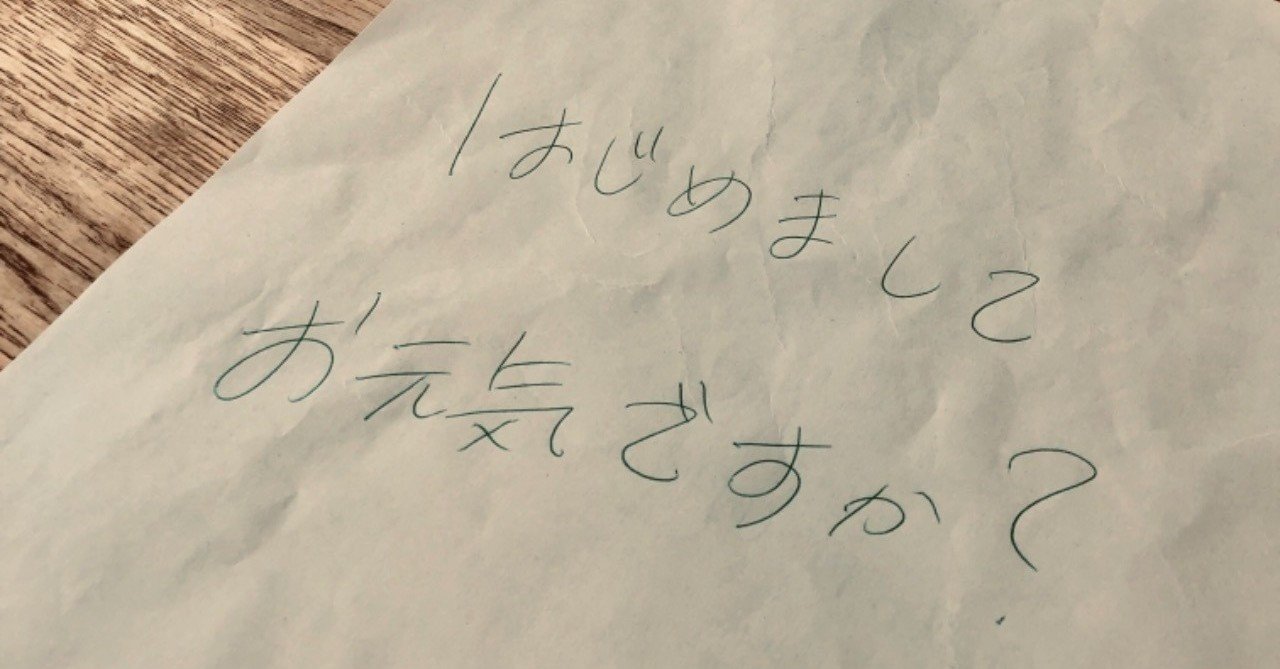 はじめまして
お元気ですか?